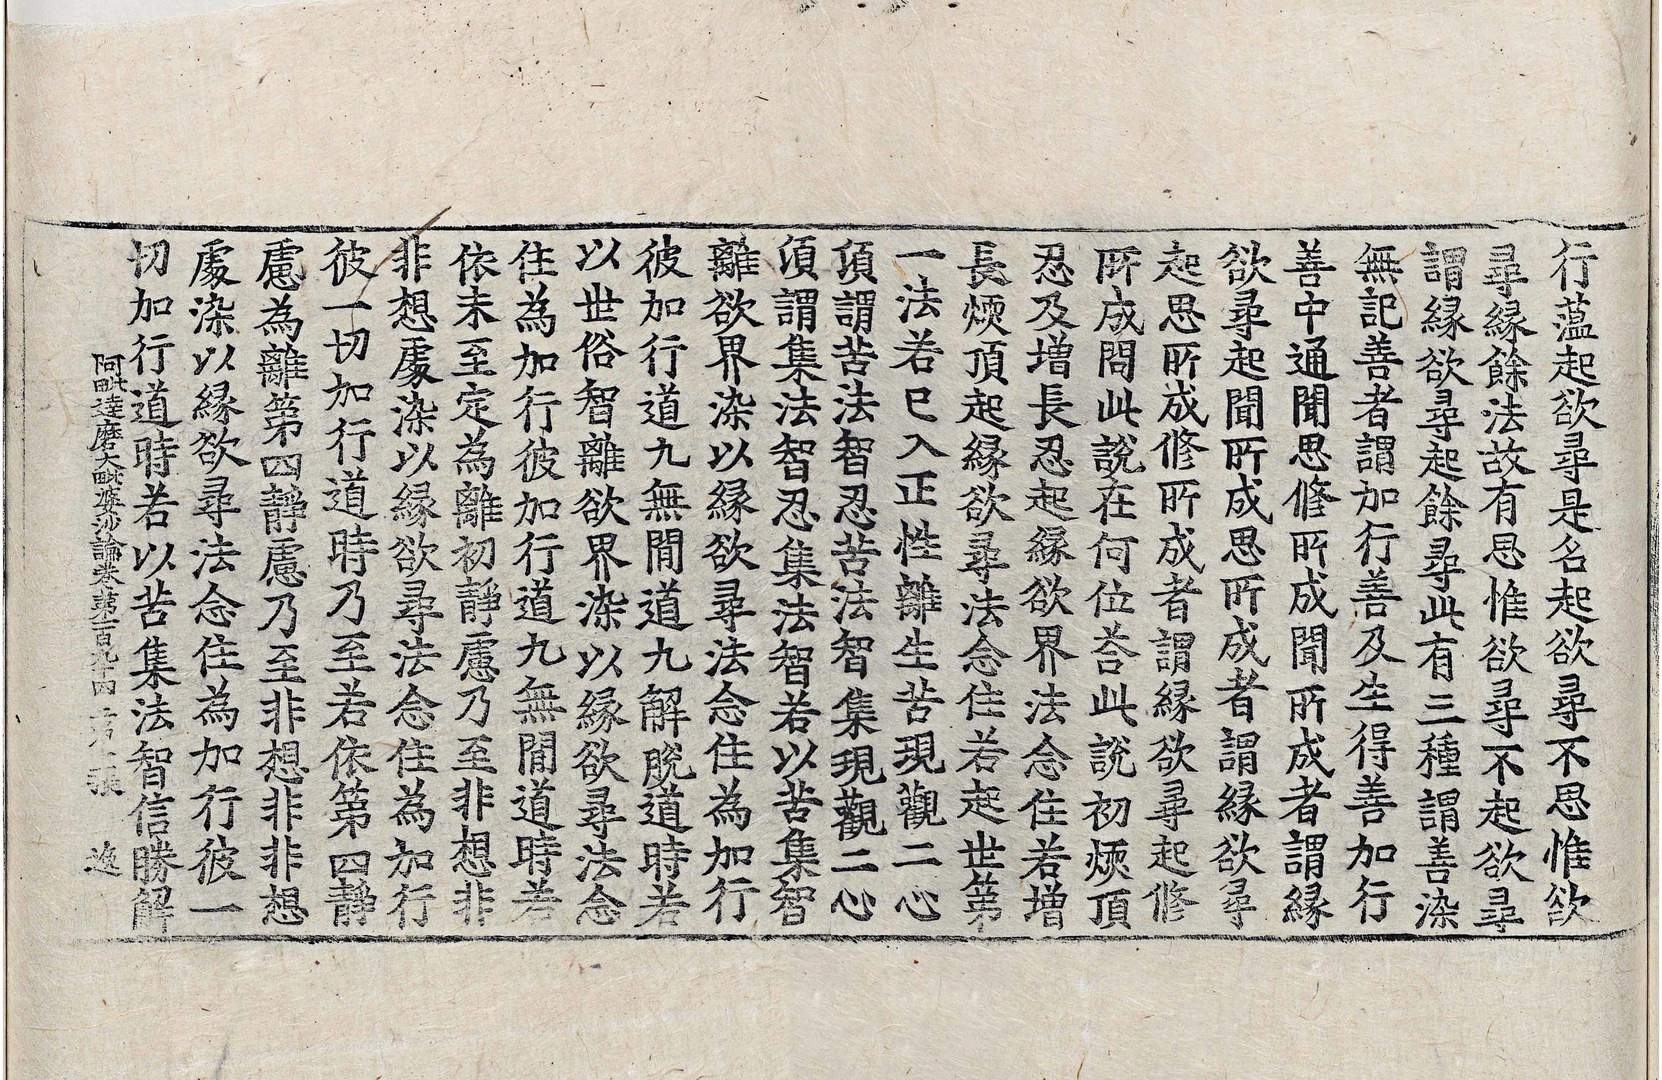 行蘊起欲尋是名起欲尋不思惟欲
尋緣餘法故有思惟欲尋不起欲尋
謂緣欲尋起餘尋此有三種謂善染
無記善者謂加行善及生得善加行
善中通聞思修所成聞所成者謂緣
欲尋起聞所成思所成者謂緣欲尋
起思所成修所成者謂緣欲尋起修
所成問此說在何位荅此說初煗頂
忍及增長忍起緣欲界法念住若增
長煗頂起緣欲尋法念住若起世第
一法若已入正性離生苦現觀二心
頃謂苦法智忍苦法智集現觀二心
頃謂集法智忍集法智若以苦集智
離欲界染以緣欲尋法念住為加行
彼加行道九無間道九解脫道時若
以世俗智離欲界染以緣欲尋法念
住為加行彼加行道九無間道時若
依未至定為離初靜慮乃至非想非
非想處染以緣欲尋法念住為加行
彼一切加行道時乃至若依第四靜
慮為離第四靜慮乃至非想非非想
處染以緣欲尋法念住為加行彼一
切加行道時若以苦集法智信勝解
阿毗達磨大毗婆沙論卷第一百九十四 張